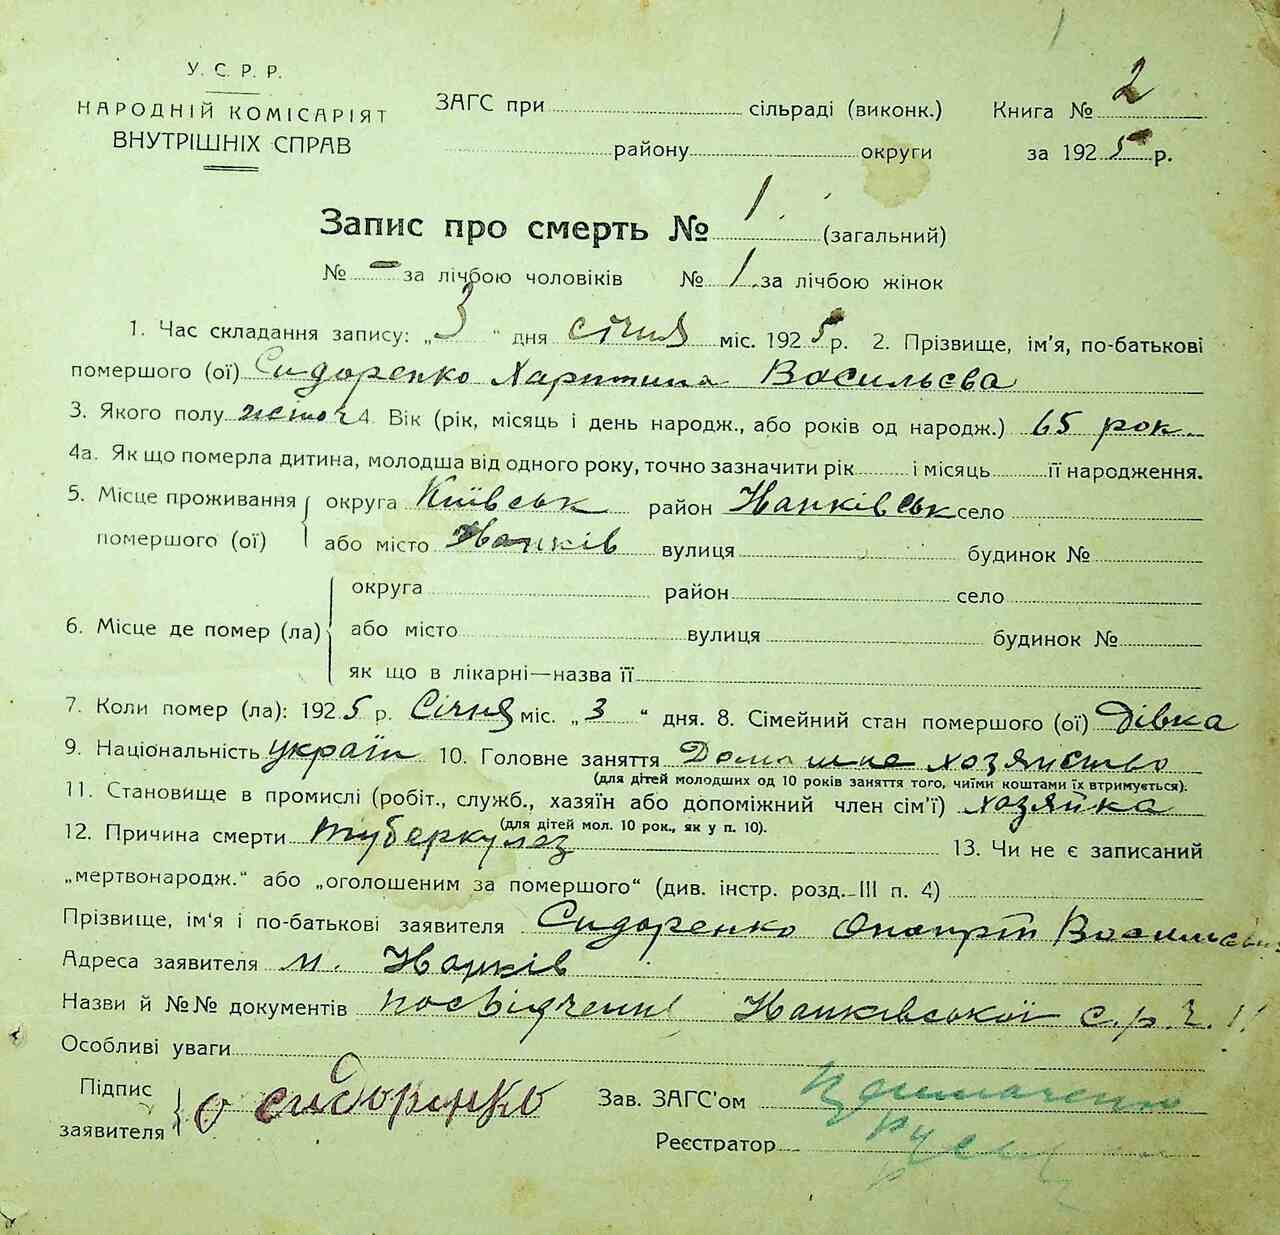 У. С. Р. Р.
НАРОДНІЙ КОМІСАРІЯТ
ВНУТРІШНІХ СПРАВ
ЗАГС при сільраді (виконк.)
району округи
Книга № 2
за 1925 р.
Запис про смерть № 1. (загальний)
№ - за лічбою чоловіків № 1. за лічбою жінок
1. Час складання запису: „3“ дня січня міс. 1925 р. 2. Прізвище, ім'я, по-батькові
помершого (ої) Сидоренко Харитина Васильєва
3. Якого полу 4. Вік (рік, місяць і день народж., або років од народж.) 65 рок.
4а. Як що померла дитина, молодша від одного року, точно зазначити рік і місяць її народження.
5. Місце проживання помершого (ої) округа Київськ район село
або місто вулиця будинок №
6. Місце де помер (ла) округа район село
або місто вулиця будинок №
як що в лікарні—назва її
7. Коли помер (ла): 1925 р. Січня міс. „3“ дня. 8. Сімейний стан помершого (ої) дівка
9. Національність україн 10. Головне заняття Домашне хозянство
(для дітей молодших од 10 років заняття того, чиїми коштами їх втримується).
11. Становище в промислі (робіт., служб., хазяїн або допоміжний член сім'ї) хозяйка
(для дітей мол. 10 рок., як у п. 10).
12. Причина смерти туберкульоз 13. Чи не є записаний
„мертвонародж.“ або „оголошеним за помершого“ (див. інстр. розд. III п. 4)
Прізвище, ім'я і по-батькові заявителя Сидоренко
Адреса заявителя м.
Назви й №№ документів посвідчення с.р.
Особливі уваги
Підпис заявителя О Сидоренко
Зав. ЗАГС'ом
Реєстратор